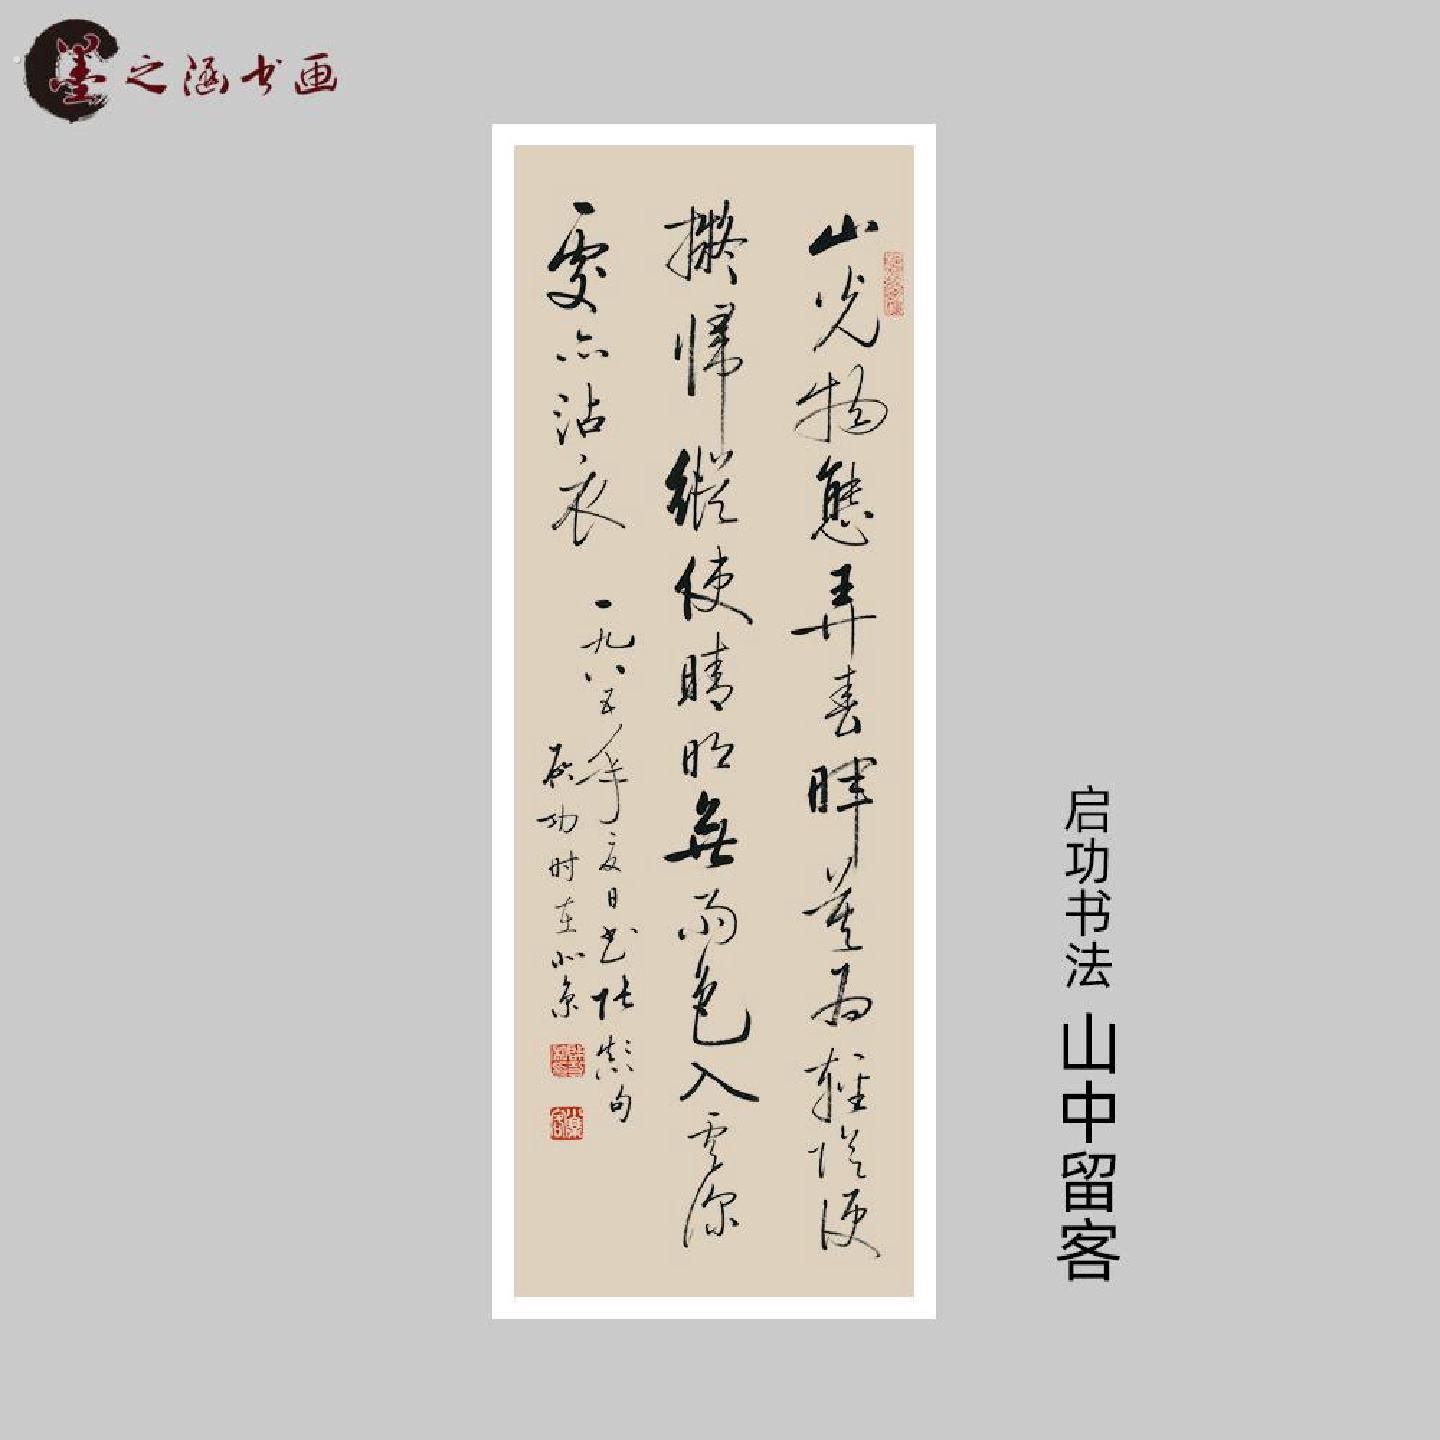 墨之涵书画
山光物態弄春暉莫为輕阴便
擬歸縱使晴明無雨色入雲深
處亦沾衣
一九八五年夏日书张颠句
启功时在北京
启功书法 山中留客